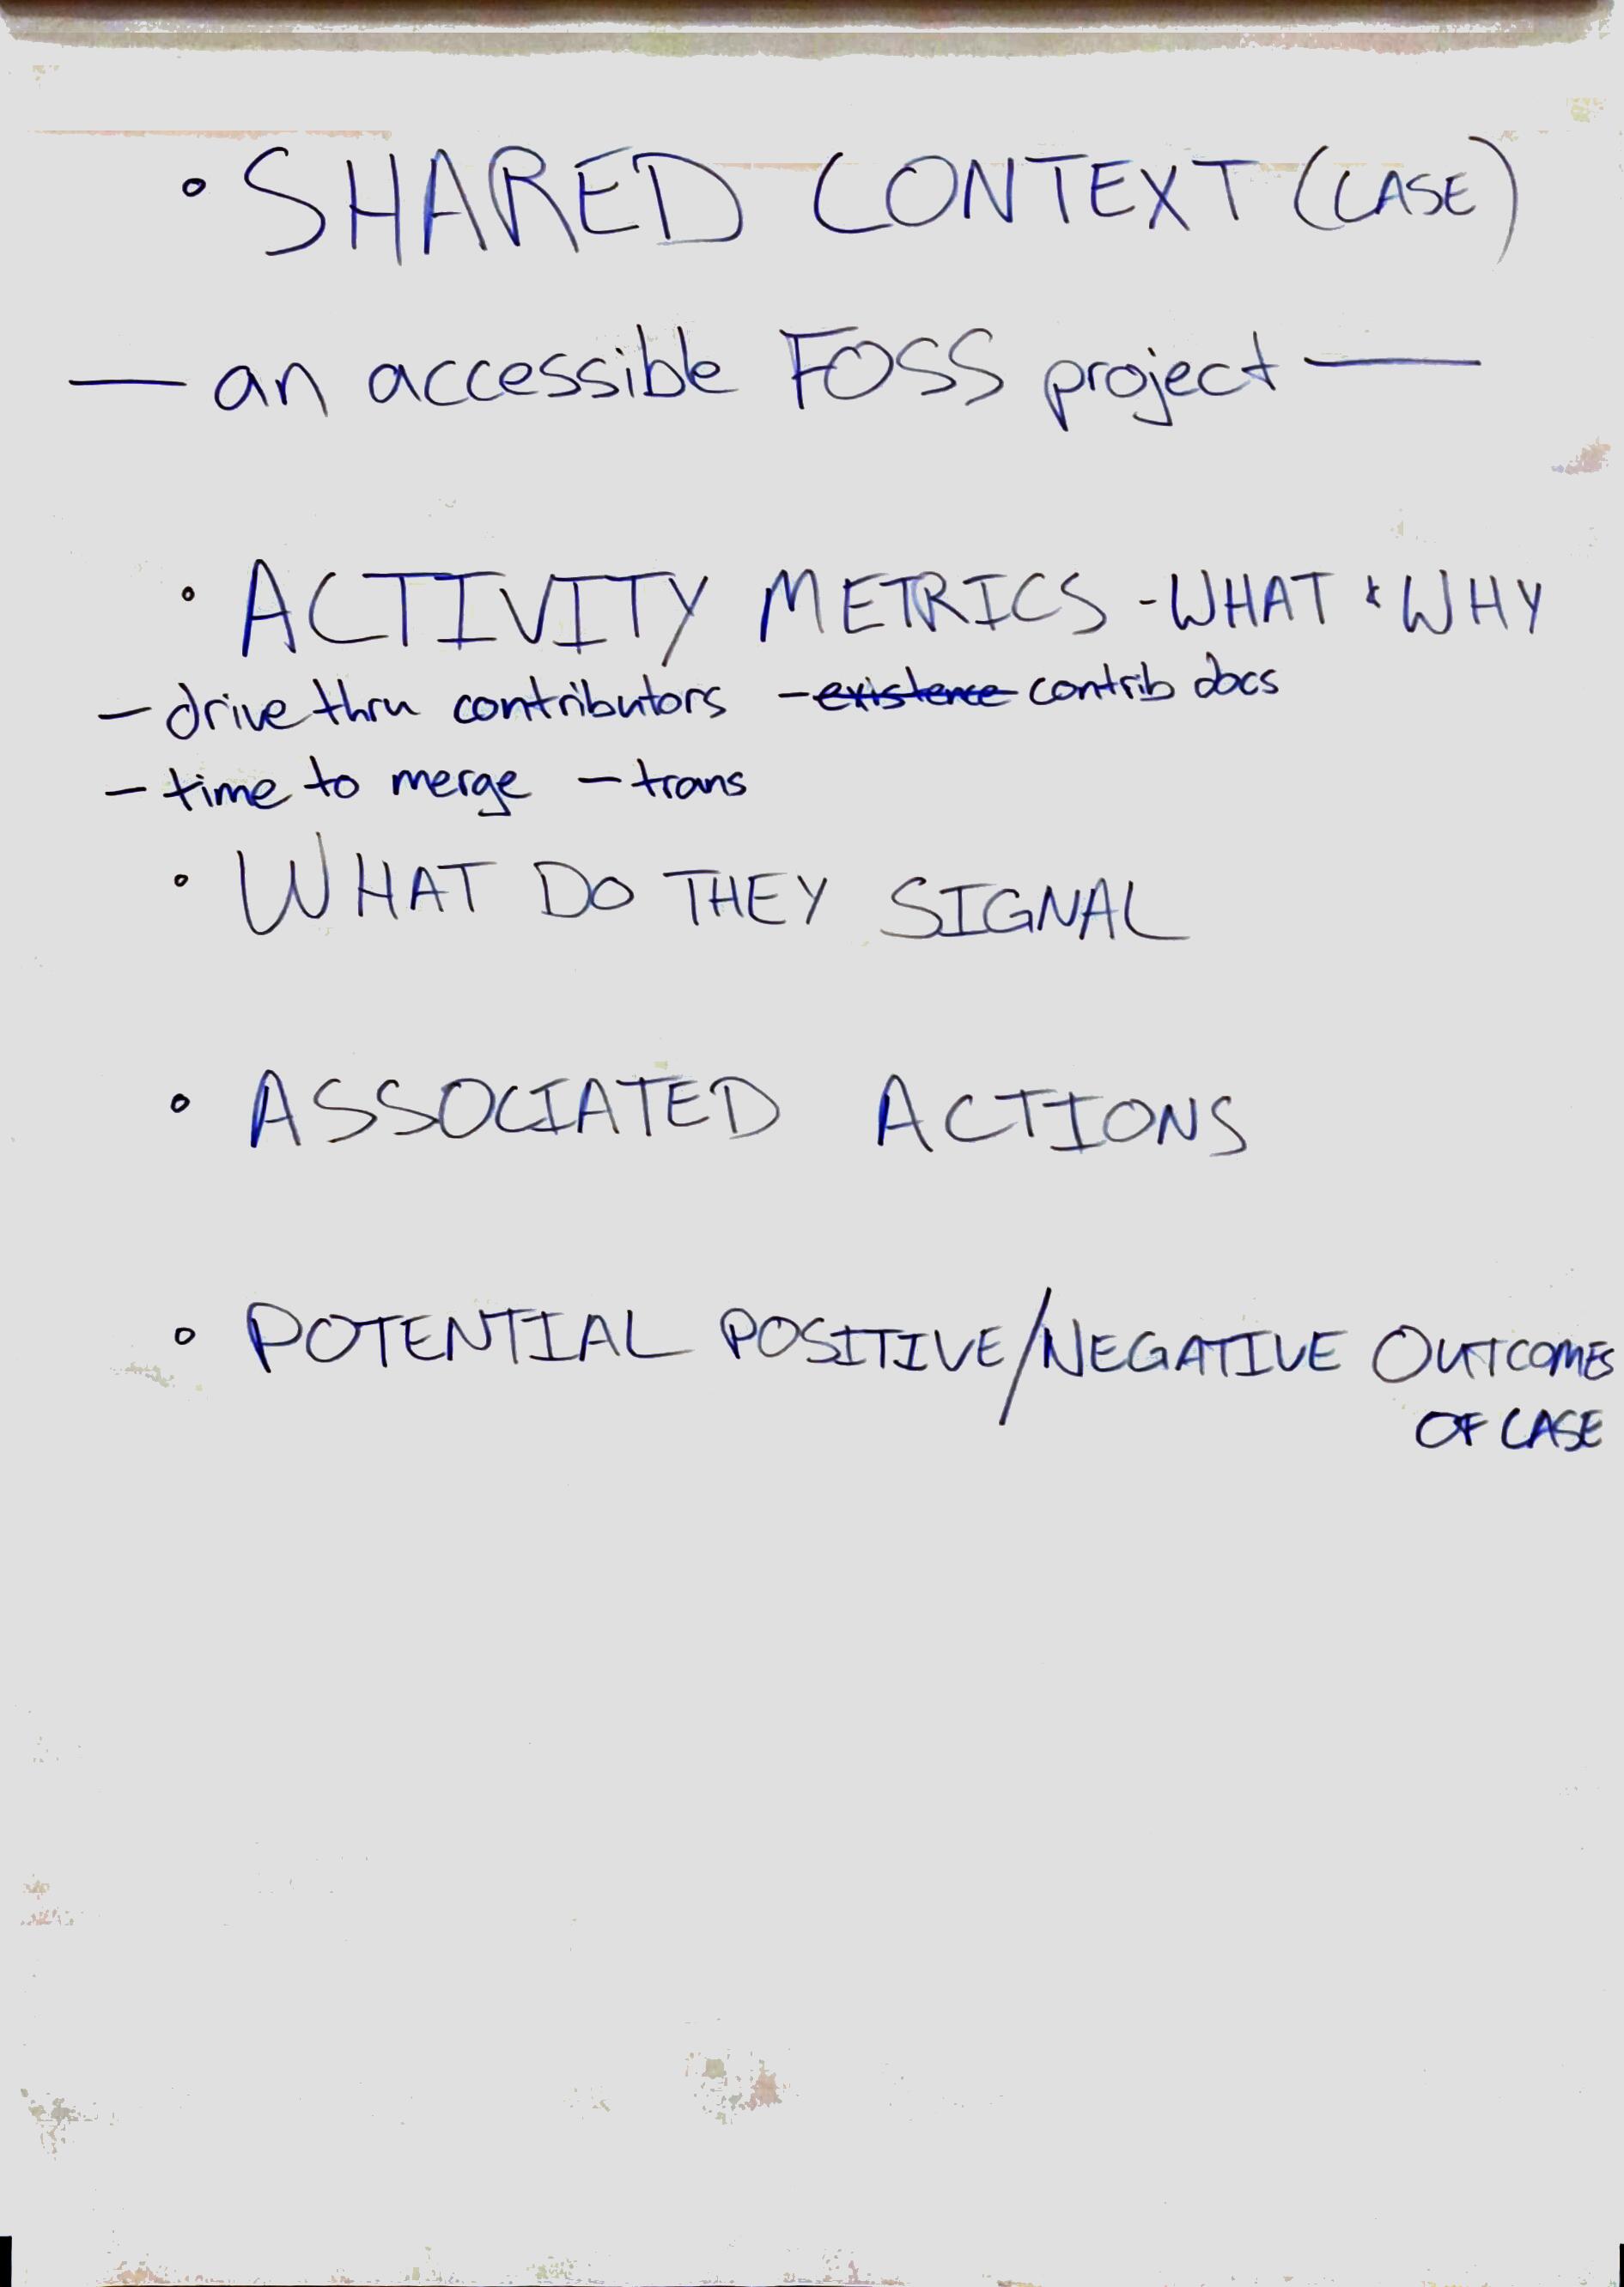 • SHARED CONTEXT (CASE)
— an accessible FOSS project —
• ACTIVITY METRICS - WHAT & WHY
— drive thru contributors — existence contrib docs
— time to merge — trans
• WHAT DO THEY SIGNAL
• ASSOCIATED ACTIONS
• POTENTIAL POSITIVE/NEGATIVE OUTCOMES
OF CASE